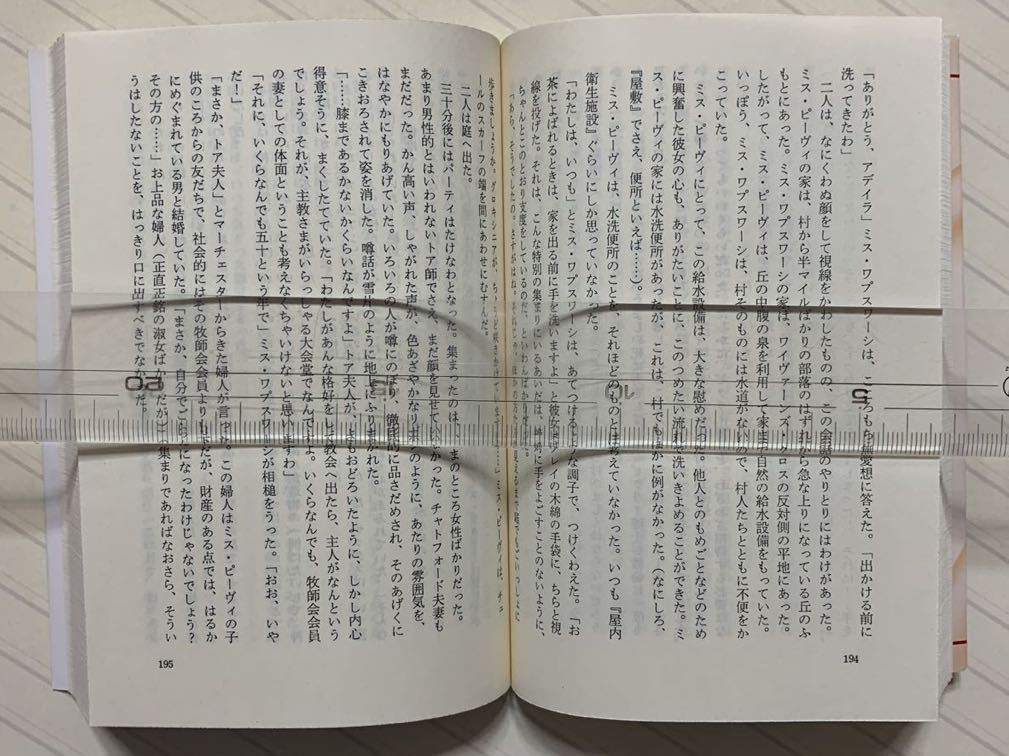 「ありがとう、アデイラ」ミス・ワプスワーシは、こころもち無愛想に答えた。「出かける前に
洗ってきたわ」
二人は、なにくわぬ顔をして視線をかわしたものの、この会話のやりとりにはわけがあった。
ミス・ピーヴィの家は、村から半マイルばかりの部落のはずれから急な上りになっている丘のふ
もとにあった。ミス・ワプスワーシの家は、ワイヴァーンズ・クロスの反対側の平地にあった。
したがって、ミス・ピーヴィは、丘の中腹の泉を利用して家まで自然の給水設備をもっていた。
いっぽう、ミス・ワプスワーシは、村そのものには水道がないので、村人たちとともに不便をか
こっていた。
ミス・ピーヴィにとって、この給水設備は、大きな慰めだった。他人とのもめごとなどのため
に興奮した彼女の心も、ありがたいことに、このつめたい流れで洗いきよめることができた。ミ
ス・ピーヴィの家には水洗便所があったが、これは、村でもほかに例がなかった。(なにしろ、
『屋敷』でさえ、便所といえば……)。
ミス・ピーヴィは、水洗便所のことを、それほどのものとは考えていなかった。いつも『屋内
衛生施設』ぐらいにしか思っていなかった。
「わたしは、いつも」とミス・ワプスワーシは、あてつけるような調子で、つけくわえた。「お
茶によばれるときは、家を出る前に手を洗いますよ」と彼女はグレイの木綿の手袋に、ちらと視
線を投げた。それは、こんな特別の集まりにいるあいだは、
ちゃんとこのとおり支度をしているのだ、といわんばかり
「あら、そうでしたの。さすがはね。
194
歩きましょうか。グロキシニアが、ちょうど咲きかけて　ミス・ピーヴィは、サテ
ールのスカーフの端を間にあわせにむすんだ。
二人は庭へ出た。
三十分後にはパーティはたけなわとなった。集まったのは、いまのところ女性ばかりだった。
あまり男性的とはいわれないトア師でさえ、まだ顔を見せていなかった。チャトフォード夫妻も
まだだった。かん高い声、しゃがれた声が、色あざやかなリボンのように、あたりの雰囲気を、
はなやかにもりあげていた。いろいろの人が噂にのぼり、徹底的に品さだめされ、そのあげくに
こきおろされて姿を消した。噂話が雪片のように地上にふりまかれた。
「……膝まであるかないかくらいなんですよ」トア夫人が、さもおどろいたように、しかし内心
得意そうに、まくしたてていた。「わたしがあんな格好をして教会へ出たら、主人がなんという
でしょう。それが、主教さまがいらっしゃる大会堂でなんですよ。いくらなんでも、牧師会会員
の妻としての体面ということも考えなくちゃいけないと思いますわ」
「それに、いくらなんでも五十という年で」ミス・ワプスワーシが相槌をうった。「おお、いや
だ！」
「まさか、トア夫人」とマーチェスターからきた婦人が言った。この婦人はミス・ピーヴィの子
供のころからの友だちで、社会的にはその牧師会会員よりも下だが、財産のある点では、はるか
にめぐまれている男と結婚していた。「まさか、自分でごらんになったわけじゃないでしょう？
その方の……」お上品な婦人(正直正銘の淑女ばかりだが)の集まりであればなおさら、そうい
うはしたないことを、はっきり口に出すべきでなかった。
195
5
10
15